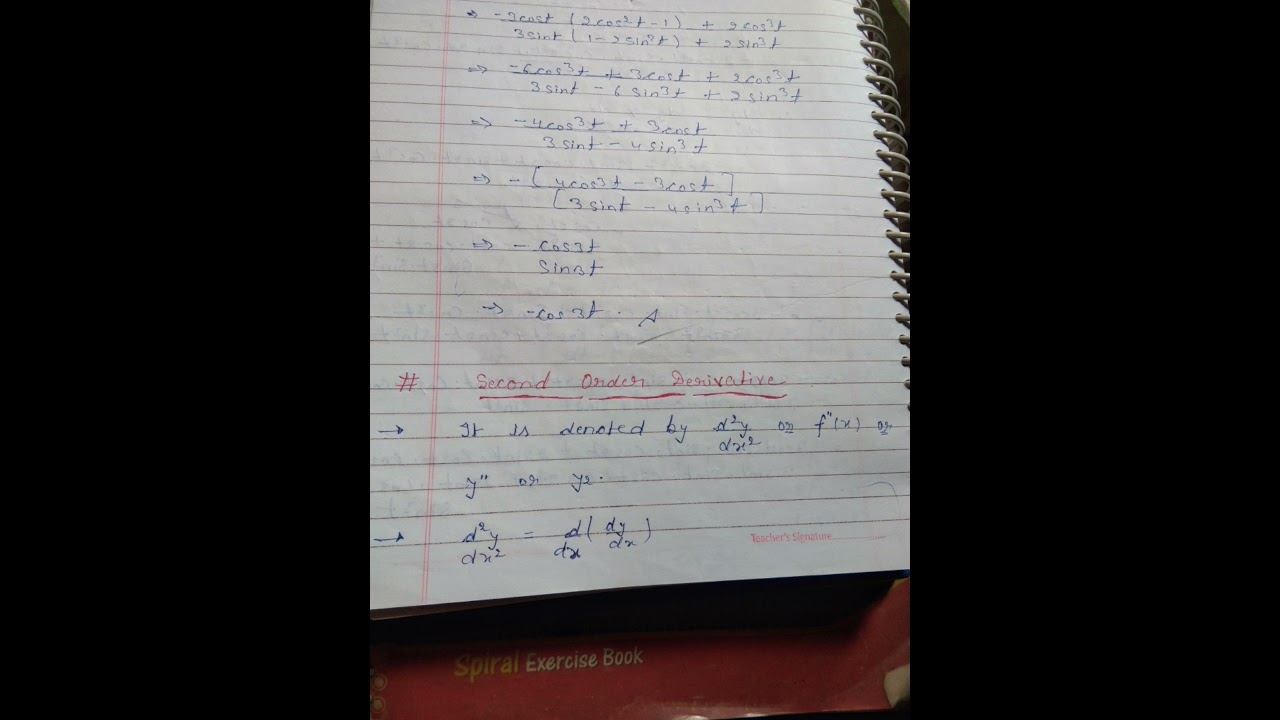 ⇒ -3cost (2cos²t-1) + 2cos³t
3sint (1-2sin²t) + 2sin³t
⇒ -6cos³t + 3cost + 2cos³t
3sint - 6sin³t + 2sin³t
⇒ -4cos³t + 3cost
3sint - 4sin³t
⇒ -[4cos³t - 3cost]
[3sint - 4sin³t]
⇒ - cos3t
sin3t
⇒ -cos3t . A
# Second Order Derivative
→ It is denoted by d²y/dx² or f"(x) or
y" or y₂.
→ d²y/dx² = d/dx (dy/dx)
Teacher's Signature
Spiral Exercise Book